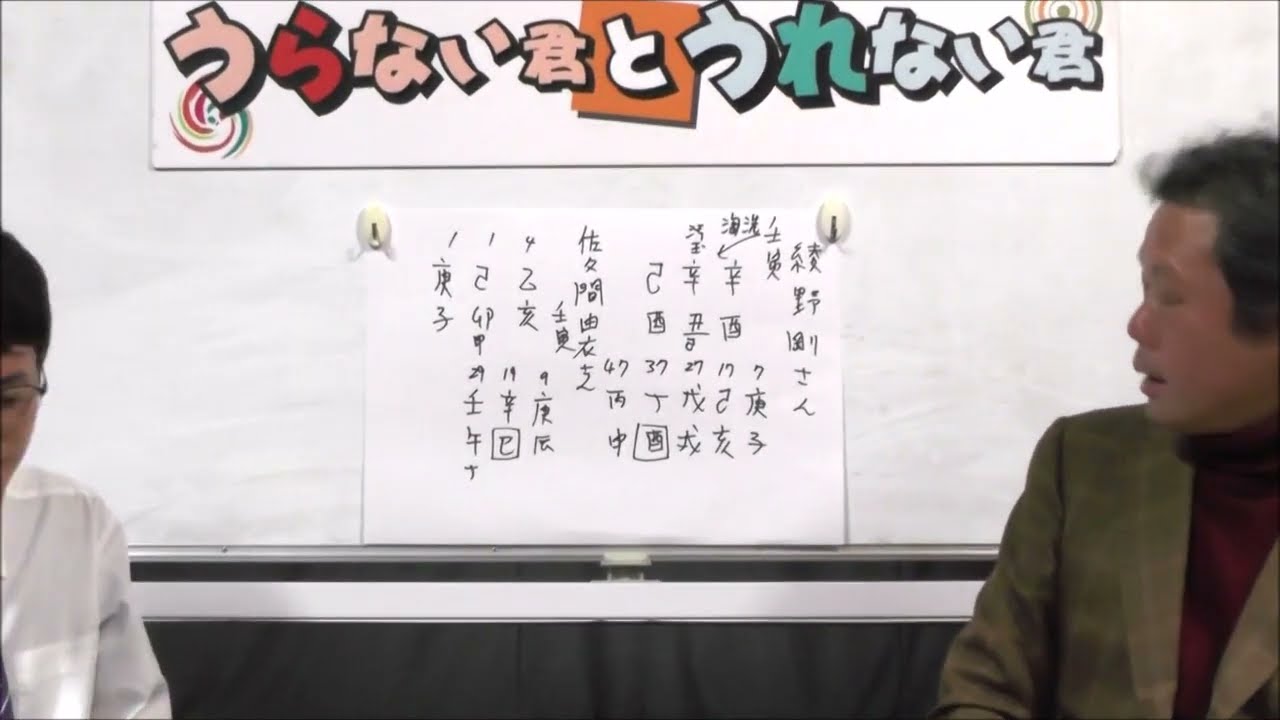 うらない君とうれない君
綾野剛さん
壬寅
海淫
辛酉
辛丑
己酉
7 17 27 37 47
庚子
己亥
戊戌
丁酉
丙申
佐久間由衣さん
壬寅
4 1 1
乙亥
己卯甲
庚子
9 19 29
庚辰
辛巳
壬午